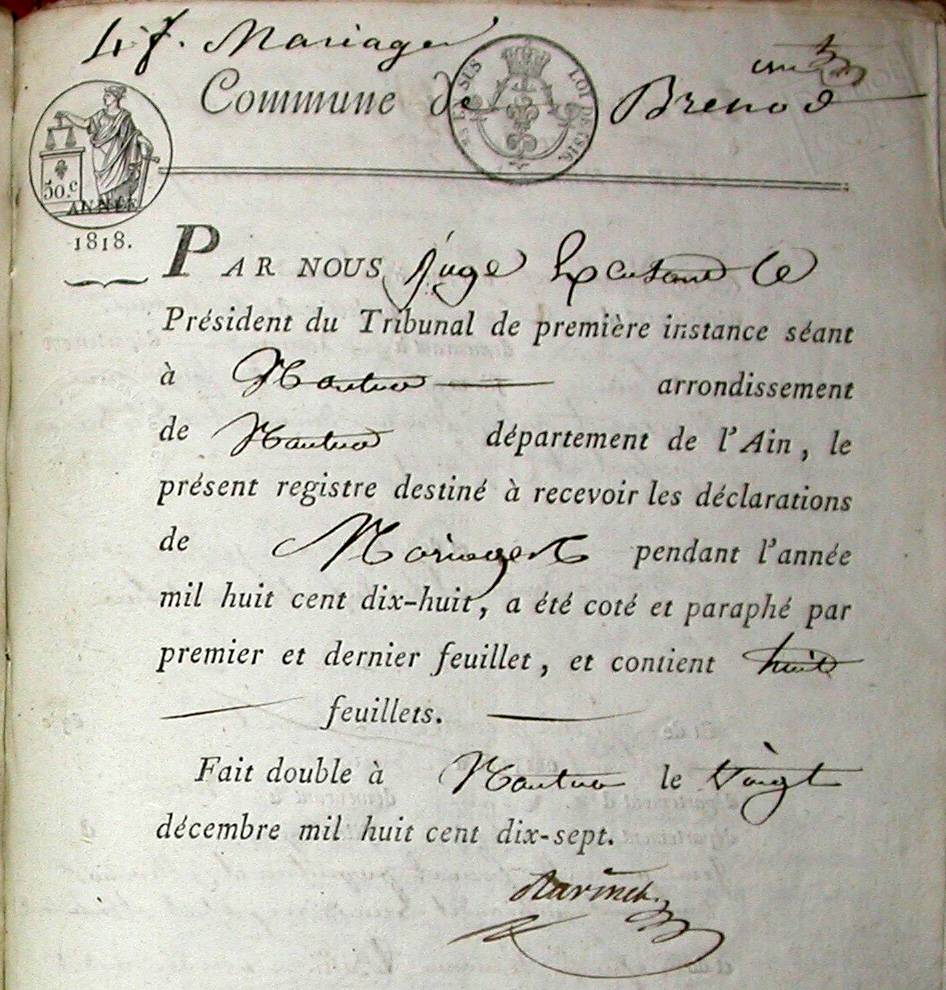 Mariages
Commune de Brenod
50.c
ANNÉE
1818.
PAR NOUS, juge Exerçant le
Président du Tribunal de première instance séant
à Nantua arrondissement
de Nantua département de l'Ain, le
présent registre destiné à recevoir les déclarations
de Mariages pendant l'année
mil huit cent dix-huit, a été coté et paraphé par
premier et dernier feuillet, et contient huit
feuillets.
Fait double à Nantua le vingt
décembre mil huit cent dix-sept.